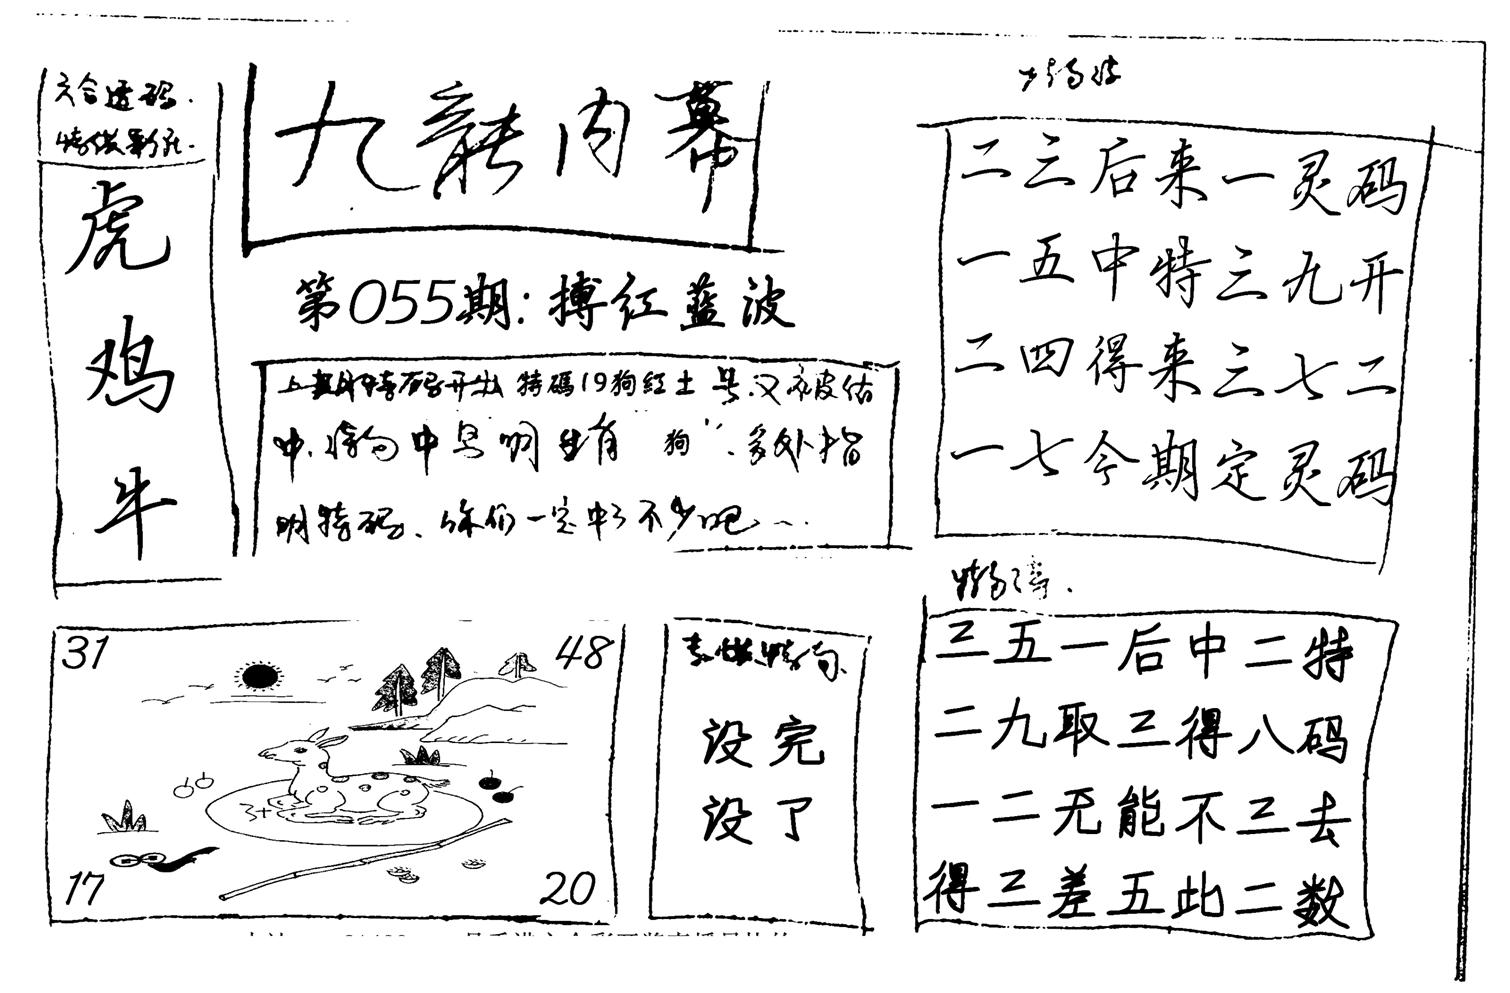 六合透码.
虎
鸡
牛
九龍内幕
第055期:搏红蓝波
上期特码开出 特碼19狗红土 号.又被估
中.特句中已明生肖"狗".多处指
明特码、你们一定中了不少吧...
二三后来一灵码
一五中特三九开
二四得来三七二
一七今期定灵码
三五一后中二特
二九取三得八码
一二无能不三去
得三差五此二数
31
48
3+
17
20
没完
没了